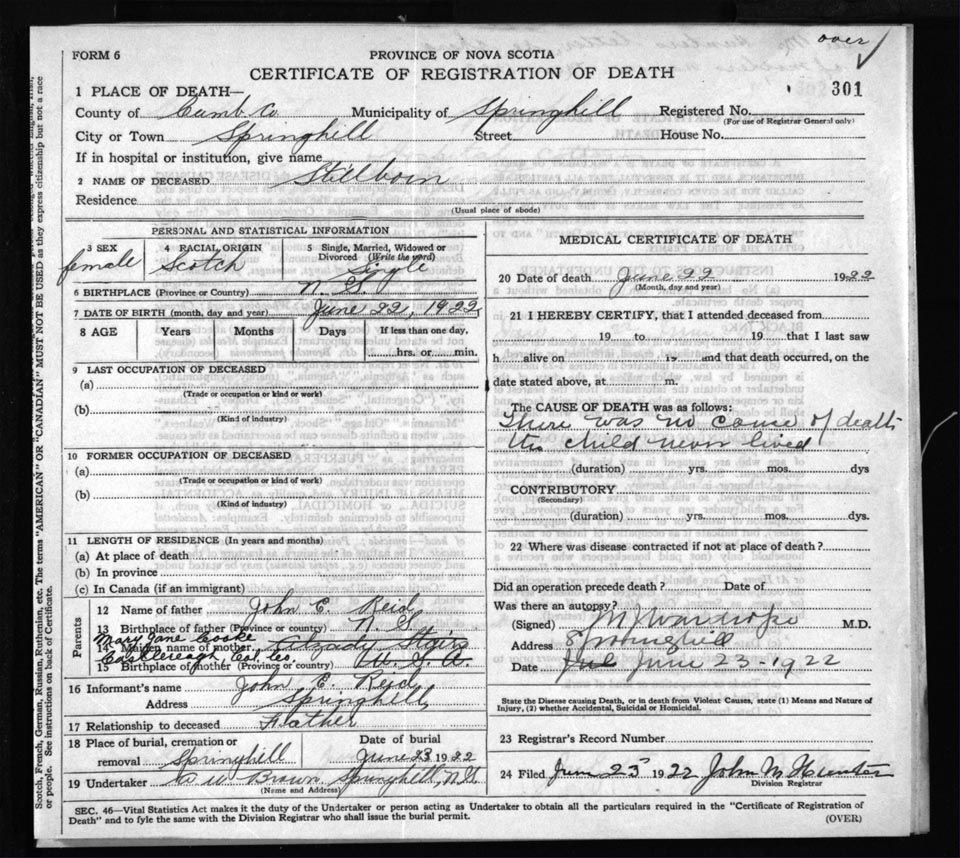 over
FORM 6
PROVINCE OF NOVA SCOTIA
CERTIFICATE OF REGISTRATION OF DEATH
301
1 PLACE OF DEATH—
County of Cumb. Co Municipality of Springhill Registered No.
(For use of Registrar General only)
City or Town Springhill Street House No.
If in hospital or institution, give name
2 NAME OF DECEASED Stillborn
Residence
(Usual place of abode)
PERSONAL AND STATISTICAL INFORMATION
3 SEX female
4 RACIAL ORIGIN Scotch
5 Single, Married, Widowed or Divorced (Write the word) Single
6 BIRTHPLACE (Province or Country) N. S.
7 DATE OF BIRTH (month, day and year) June 22, 1922
8 AGE Years Months Days If less than one day,
hrs. or min.
9 LAST OCCUPATION OF DECEASED
(a)
(Trade or occupation or kind or work)
(b)
(Kind of industry)
10 FORMER OCCUPATION OF DECEASED
(a)
(Trade or occupation or kind of work)
(b)
(Kind of industry)
11 LENGTH OF RESIDENCE (In years and months)
(a) At place of death
(b) In province
(c) In Canada (if an immigrant)
Parents
12 Name of father John E. Reid
13 Birthplace of father (Province or Country) N S
Mary Jane Cooke
14 Maiden name of mother Stairs
Castlereagh Col. Co.
15 Birthplace of mother (Province or country) U. S. A.
16 Informant's name John E. Reid
Address Springhill
17 Relationship to deceased Father
18 Place of burial, cremation or removal Springhill
Date of burial June 23 1922
19 Undertaker Brown Springhill, N.S.
(Name and Address)
MEDICAL CERTIFICATE OF DEATH
20 Date of death June 22 1922
(Month, day and year)
21 I HEREBY CERTIFY, that I attended deceased from
19 to 19 that I last saw
h alive on 19 and that death occurred, on the
date stated above, at m.
The CAUSE OF DEATH was as follows:
There was no cause of death
the child never lived
(duration) yrs. mos. dys
CONTRIBUTORY
(Secondary)
(duration) yrs. mos. dys.
22 Where was disease contracted if not at place of death?
Did an operation precede death? Date of
Was there an autopsy?
(Signed) M J Wardrope M.D.
Address Springhill
Date Jul June 23 - 1922
State the Disease causing Death, or in death from Violent Causes, state (1) Means and Nature of
Injury, (2) whether Accidental, Suicidal or Homicidal.
23 Registrar's Record Number
24 Filed June 23 1922 John M Hunter
Division Registrar
SEC. 46—Vital Statistics Act makes it the duty of the Undertaker or person acting as Undertaker to obtain all the particulars required in the "Certificate of Registration of
Death" and to fyle the same with the Division Registrar who shall issue the burial permit.
(OVER)
Scotch, French, German, Russian, Ruthenian, etc. The terms "AMERICAN" OR "CANADIAN" MUST NOT BE USED as they express citizenship but not a race
or people. See instructions on back of Certificate.